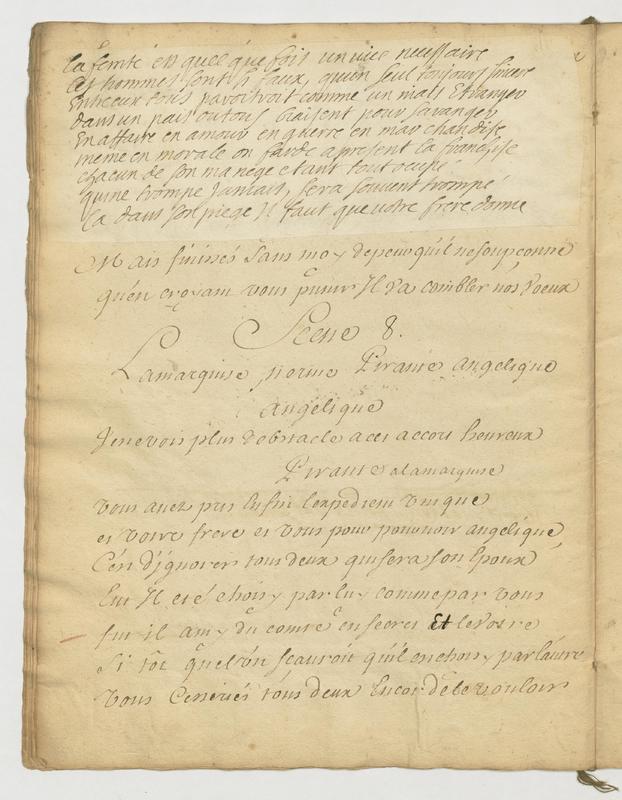 la feinte est quelquefois un vice necessaire
les hommes sont si faux, qu'un seul toujours sincere
Entreeux tous paroitroit comme un mals Etranger
dans un pais ou tous biaisent pour savanger
En affaire en amour en guerre en marchandise
meme en morale on farde apresent la franchise
chacun de son manege etant tout ocupé
quine trompe Jamais, sera souvent trompé
la dans son piege Il faut que votre frere donne
Mais finissés sans moy depeur qu'il ne soupconne
qu'en croyant vous punir Il va combler nos voeux
Scene 8.
Lamarquise nerine Pirante angelique
angelique
Jenevois plus dobstacle aces accors heureux
Pirante alamarquise
vous avez pris Enfin lexpedient unique
et votre frere et vous pour pourvoir angelique
C'est dignorer tous deux quisera son Epoux
Eut Il eté choisy par luy comme par vous
fut il amy du comte en secret Et le vostre
Si tôt quel'on scauroit qu'il est choisy par l'autre
vous Cesseriés tous deux Encor de le vouloir